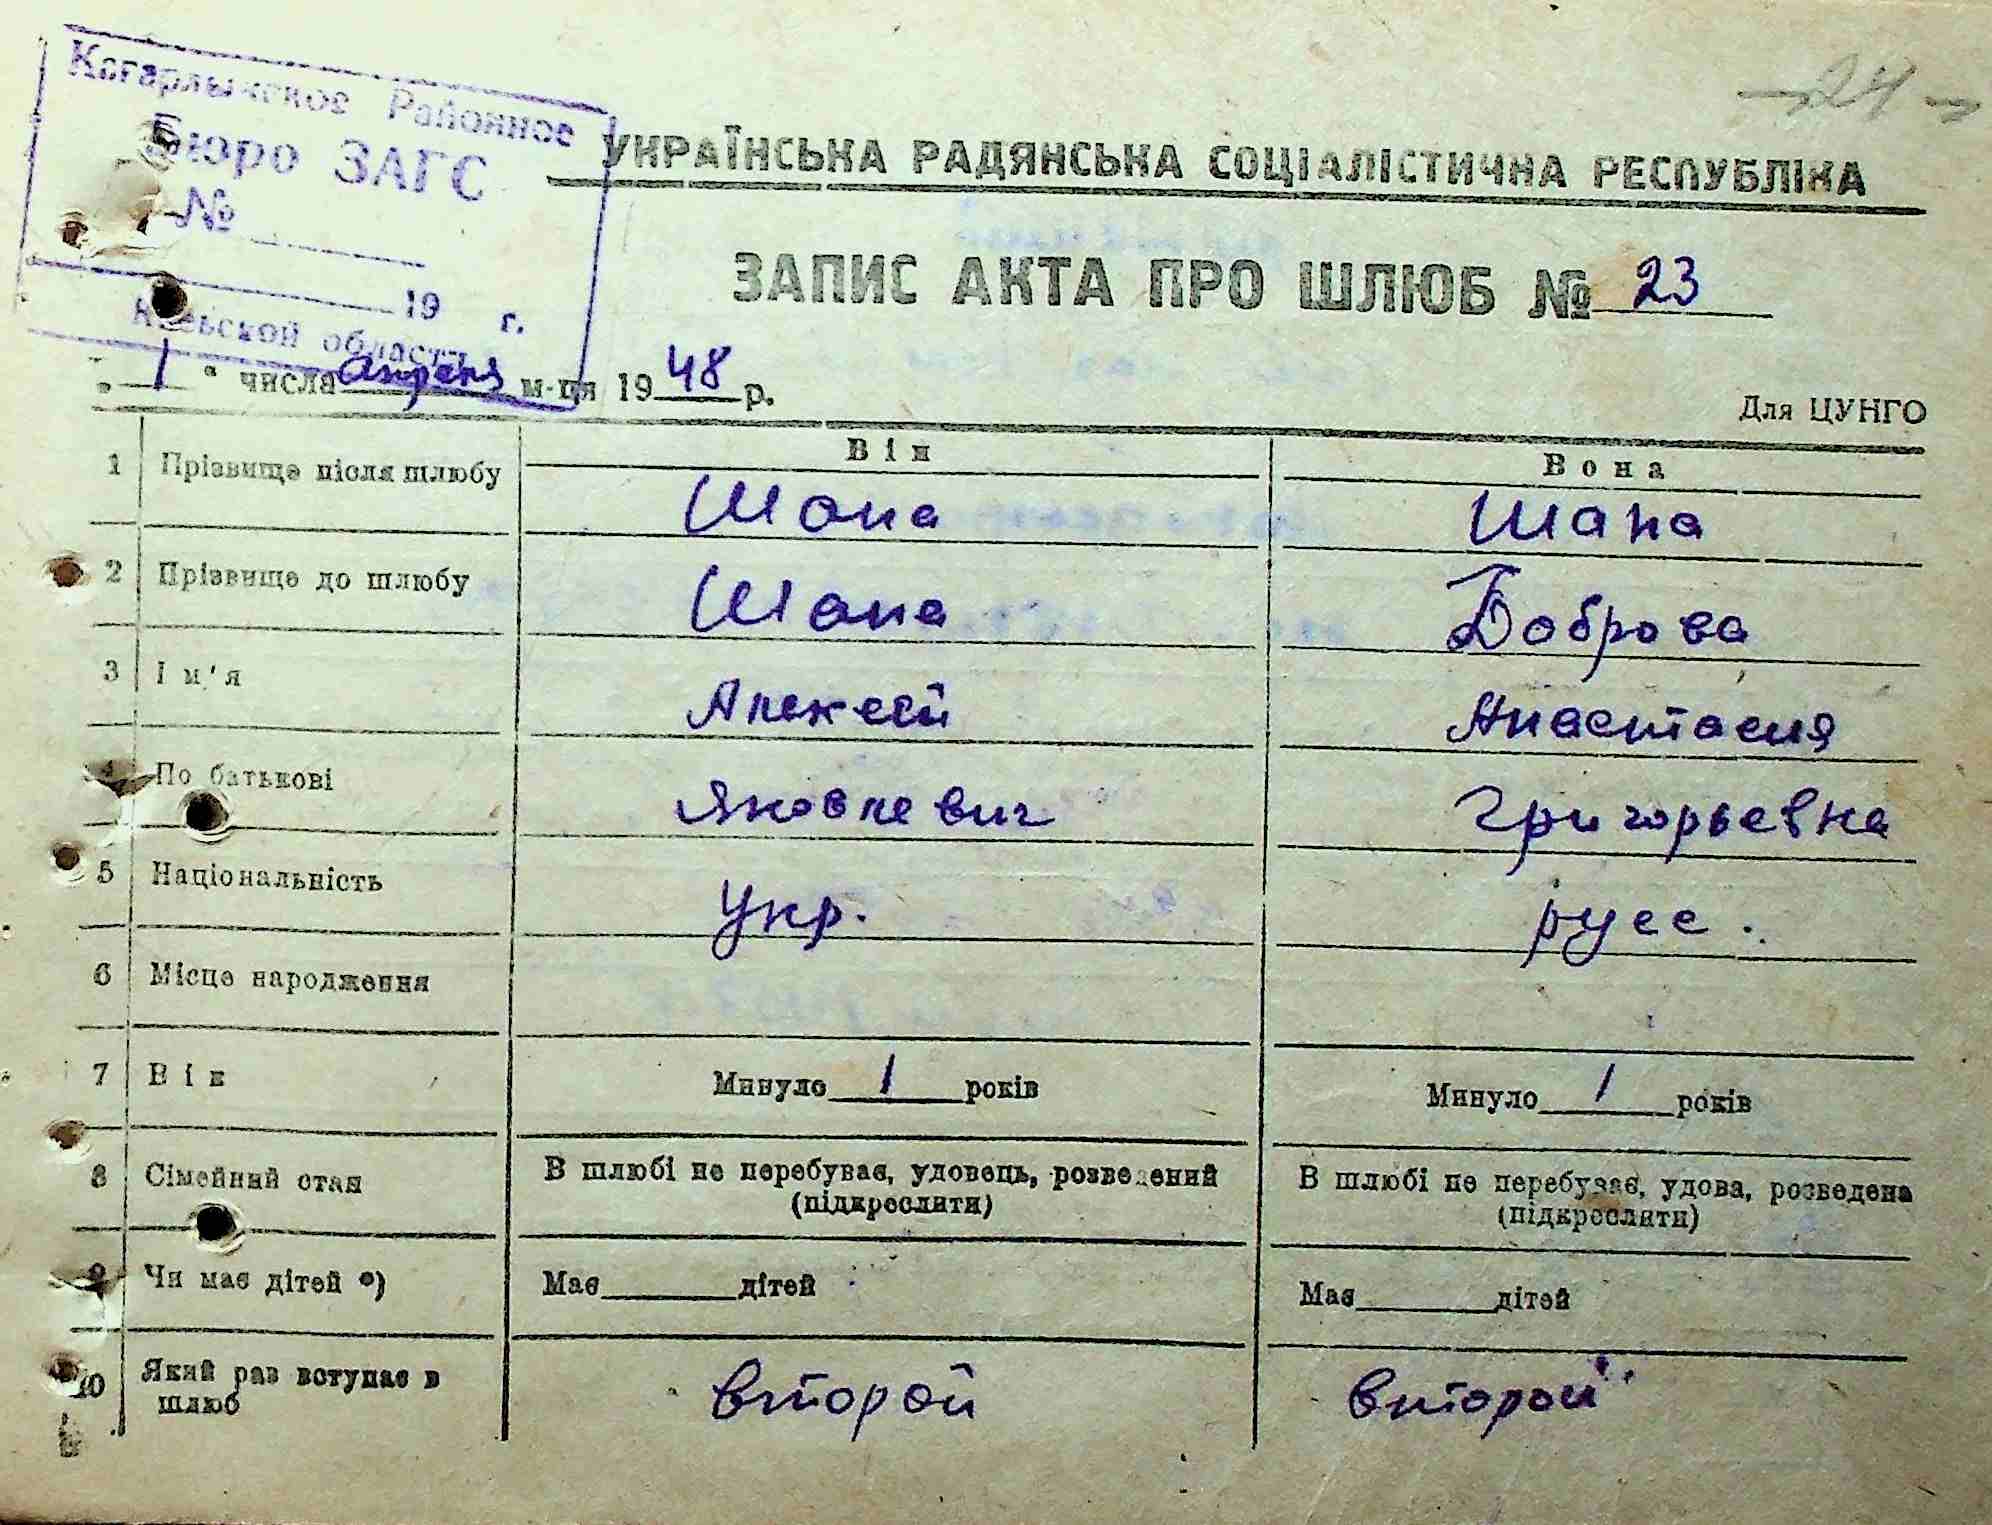 -24-
Кагарлыкское Районное
Бюро ЗАГС
№
19 г.
Киевской области
УКРАЇНСЬКА РАДЯНСЬКА СОЦІАЛІСТИЧНА РЕСПУБЛІКА
ЗАПИС АКТА ПРО ШЛЮБ № 23
„ 1 " числа апреля м-ця 1948 р.
Для ЦУНГО
Він Вона
1 Прізвище після шлюбу Шапа Шапа
2 Прізвище до шлюбу Шапа Боброва
3 Ім'я Алексей Анастасия
4 По батькові Яковлевич Григорьевна
5 Національність Укр. русс.
6 Місце народження
7 Вік Минуло 1 років Минуло 1 років
8 Сімейний стан В шлюбі не перебуває, удовець, розведений В шлюбі не перебуває, удова, розведена
(підкреслити) (підкреслити)
9 Чи має дітей *) Має дітей Має дітей
10 Який раз вступає в
шлюб второй второй